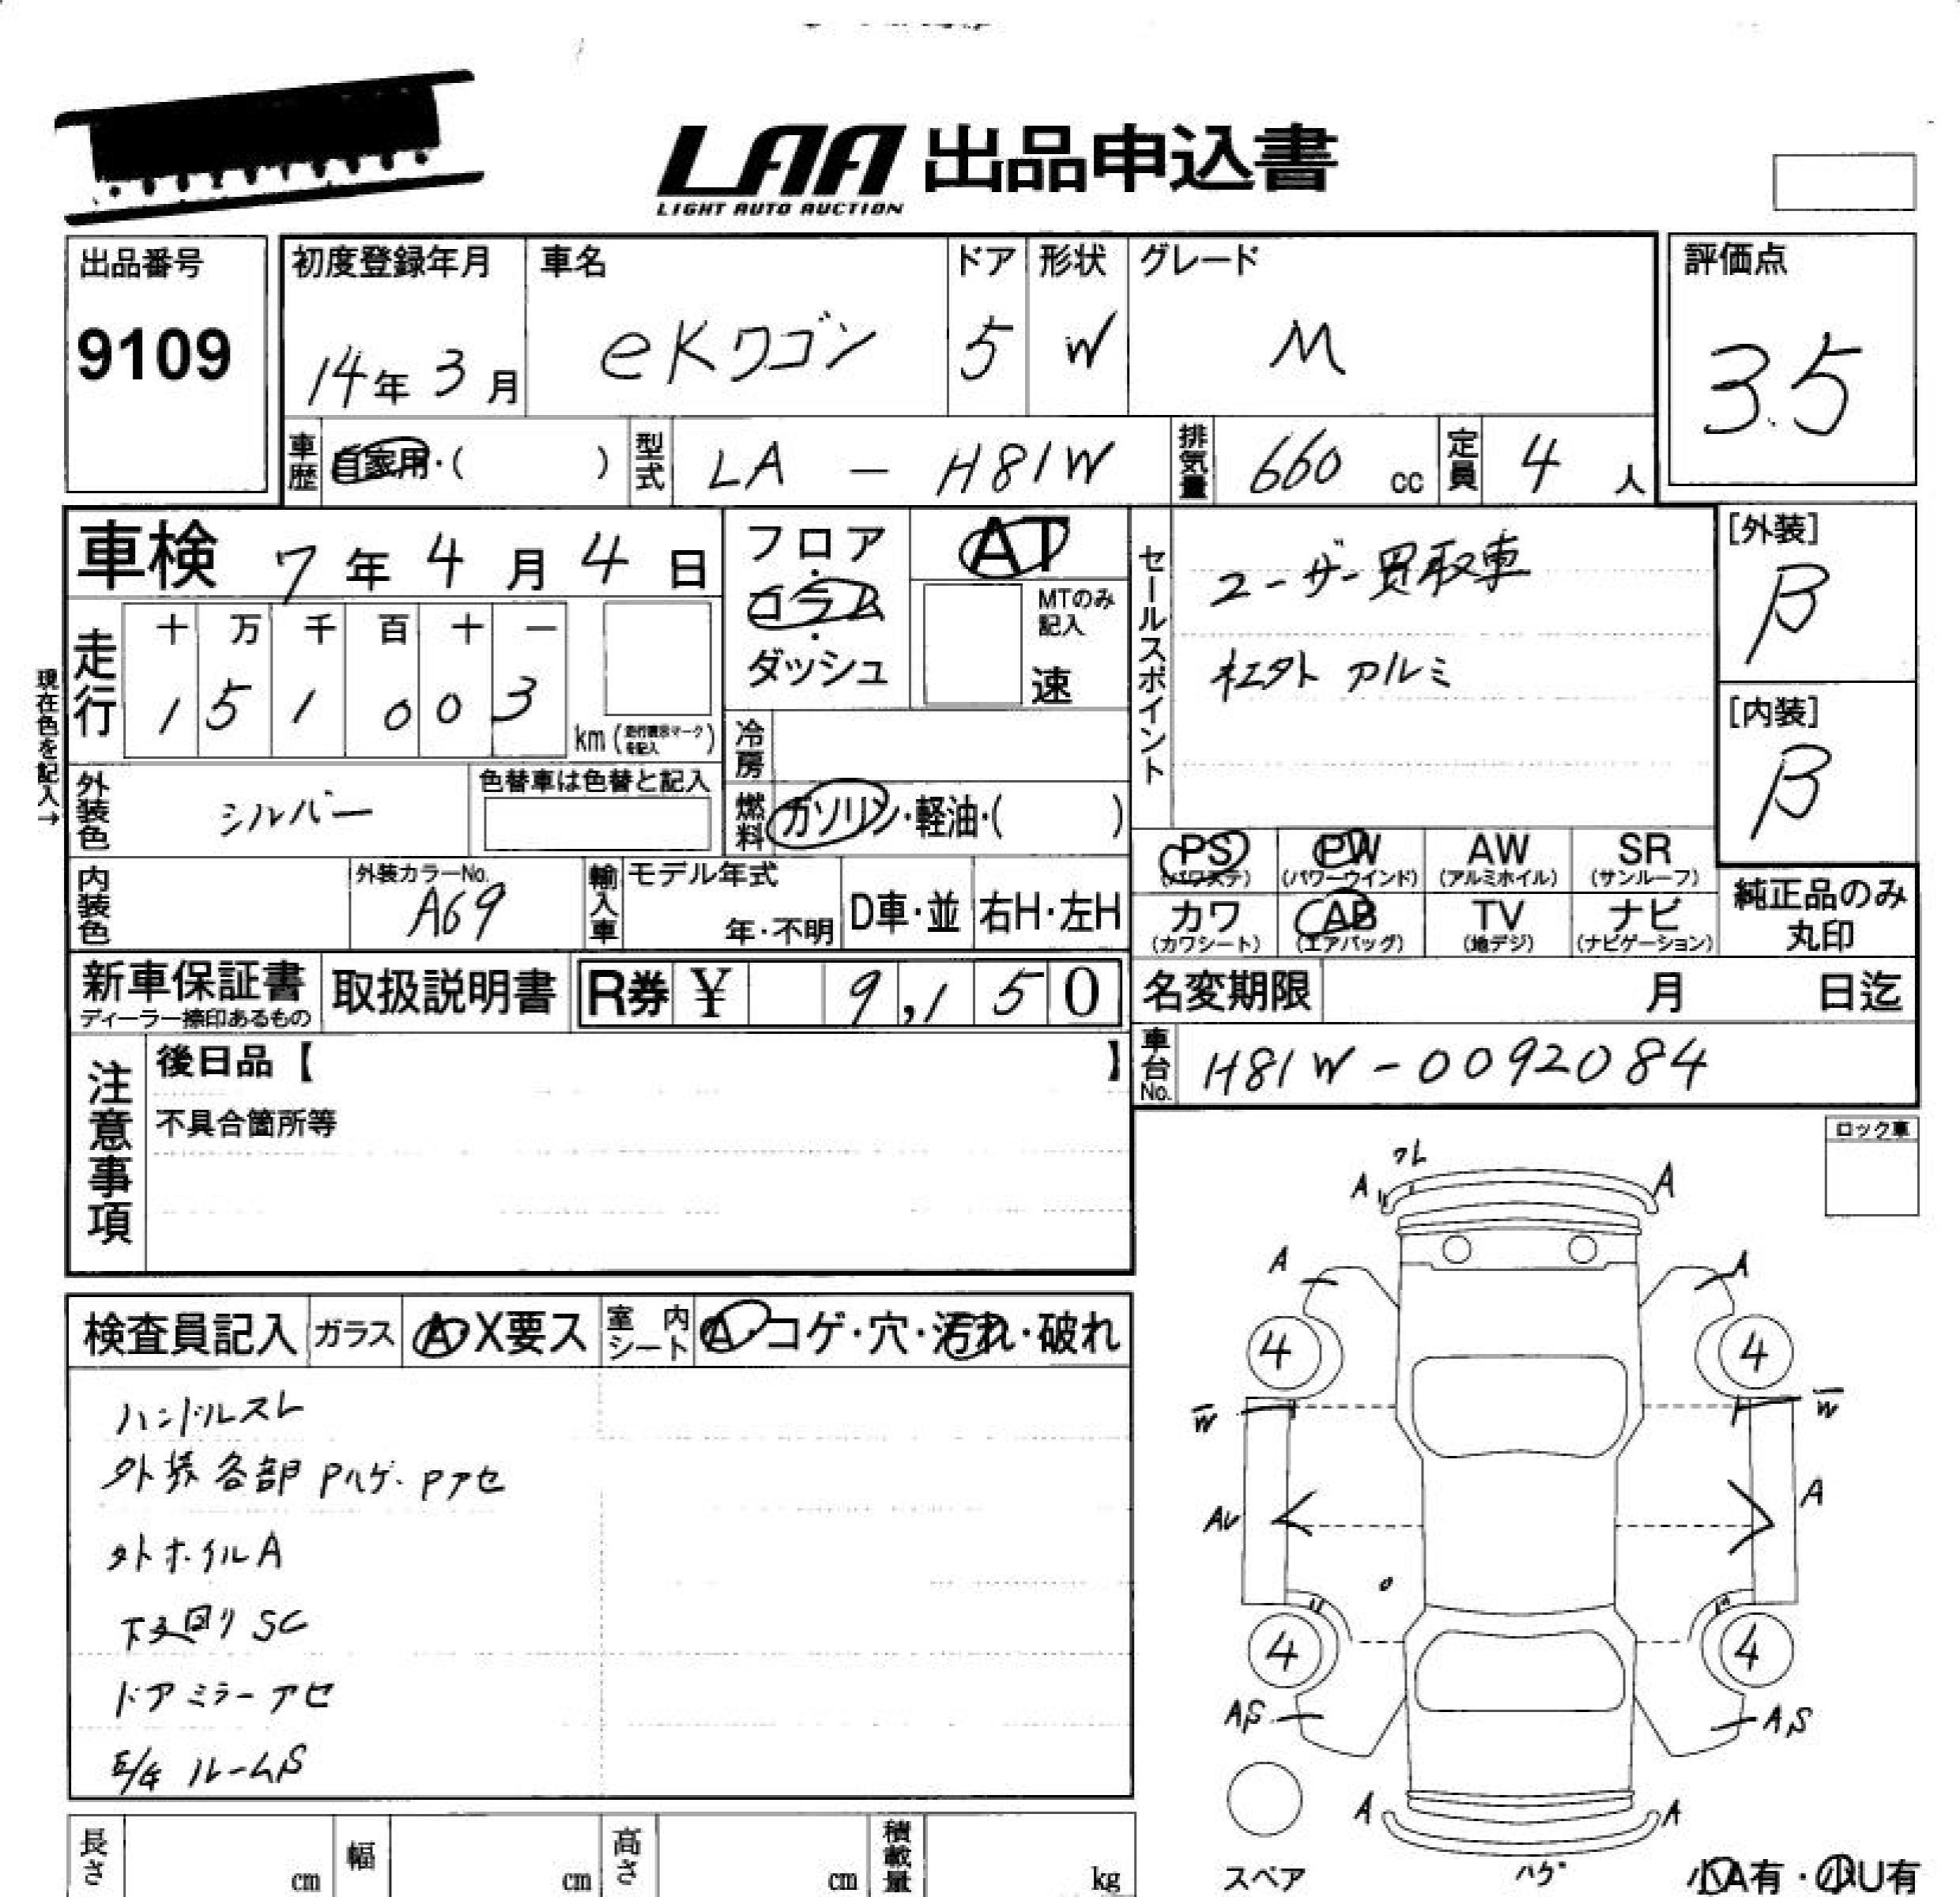 LAA 出品申込書
LIGHT AUTO AUCTION
出品番号
9109
初度登録年月
14年 3月
車名
eKワゴン
ドア
5
形状
W
グレード
M
評価点
3.5
車歴
自家用・( )
型式
LA - H81W
排気量
660 cc
定員
4 人
車検 7年 4月 4日
フロア・コラム・ダッシュ
AT
MTのみ記入
速
現在色を記入→
走行
十 万 千 百 十 一
1 5 1 0 0 3
km (走行表示マークを記入)
冷房
燃料
ガソリン・軽油・( )
外装色
シルバー
色替車は色替と記入
内装色
外装カラーNo.
A69
輸入車
モデル年式
年・不明
D車・並
右H・左H
セールスポイント
ユーザー買取車
社外 アルミ
[外装]
B
[内装]
B
PS PW AW SR
(パワステ) (パワーウインド) (アルミホイル) (サンルーフ)
カワ AB TV ナビ
(カワシート) (エアバッグ) (地デジ) (ナビゲーション)
純正品のみ
丸印
新車保証書
ディーラー捺印あるもの
取扱説明書
R券 ¥ 9,150
名変期限 月 日迄
車台No.
H81W-0092084
注意事項
後日品【 】
不具合箇所等
ロック車
検査員記入
ガラス
A・X要ス
室内シート
A・コゲ・穴・汚れ・破れ
ハンドルスレ
外装各部 Pハゲ・Pアセ
外ホイルA
下廻り SC
ドアミラーアセ
E/g ルームS
ワレ
A A
A A
4 4
W W
AU A
4 4
AS AS
A A
ハゲ
スペア
小A有・小U有
長さ cm
幅 cm
高さ cm
積載量 kg